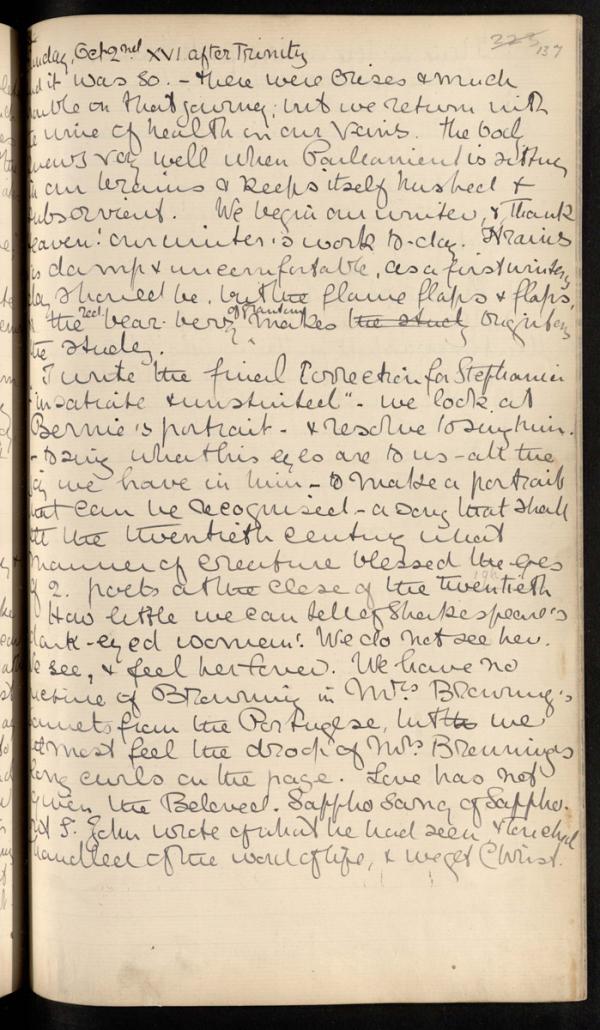 325 137
unday, Oct 2nd XVI after Trinity
d it was so. - there were Crises & much
ouble on that journey; but we return with
e wine of health in our veins. The body
nows very well when Parliament is sitting
in our brains & keeps itself hushed &
ubservient. We begin our winter, & thank
eaven! our winter's work to-day. It rains
is damp & uncomfortable, as a first winter
day should be, but the flame flaps & flaps,
& the red bear-berry of makes the study brighten
the study.
I write the final correction for Stephania
"insatiate & unstinted" - we look at
Bernie's portrait - & resolve to sing him.
- to sing what his eyes are to us - all the
joy we have in him - to make a portrait
that can be recognised - a song that shall
tell the twentieth century what
manner of creature blessed the eyes
of 2. poets at the close of the twentieth
How little we can tell of Shakespeare's
dark-eyed woman! We do not see her.
We see, & feel her lover. We have no
picture of Browning in Mrs Browning's
onnets from the Portugese, but the we
almost feel the droop of Mrs Brownings
long curls on the page. Love has not
given the Beloved. Sappho sang of Sappho.
but S. John wrote of what he had seen & touched
handled of the word of life, & we get Christ.